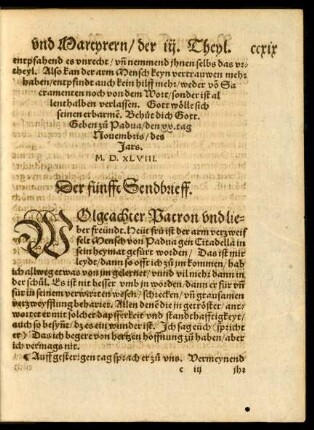 vnd Martyrern/ der iij. Theyl. ccxix
entpfahend es vnrecht/ vñ nemmend jhnen selbs das vr⸗
theyl. Also kan der arm Mensch keyn vertrauwen mehr
haben/ entpfindt auch kein hilff mehr/ weder võ Sa
cramenten noch von dem Wort/ sonder ist al
lenthalben verlassen. Gott wölle sich
seinen erbarmẽ. Behüt dich Gott.
Geben zů Padua/ den xx. tag
Nouembris/ des
Jars.
M. D. XLVIII.
Der fünffte Sendbrieff.
WOlgeachter Patron vnd lie⸗
ber freündt. Heüt frü ist der arm verzweif
felt Mensch von Padua gen Citadella in
sein heymat gefürt worden/ Das ist mir
leydt/ dann so offt ich zů jm kommen/ hab
ich allweg etwas von jm gelernet/ vnnd vil mehr dann in
der schůl. Es ist mit besser vmb jn worden/ dann er für vñ
für in seinem verwirten wesen/ schrecken/ vñ grausamen
verzweyfflung beharret. Allen denẽ die in getröstet/ ant⸗
wortet er mit solcher dapfferkeit vnd standthafftigkeyt/
auch so besyñt/ dz es ein wunder ist. Ich sag euch (spricht
er) Das ich begere von hertzen hoffnung zů haben/ aber
ich vermags nit.
Auff gesterigen tag sprach er zů vns. Vermeynend
e iij jhr